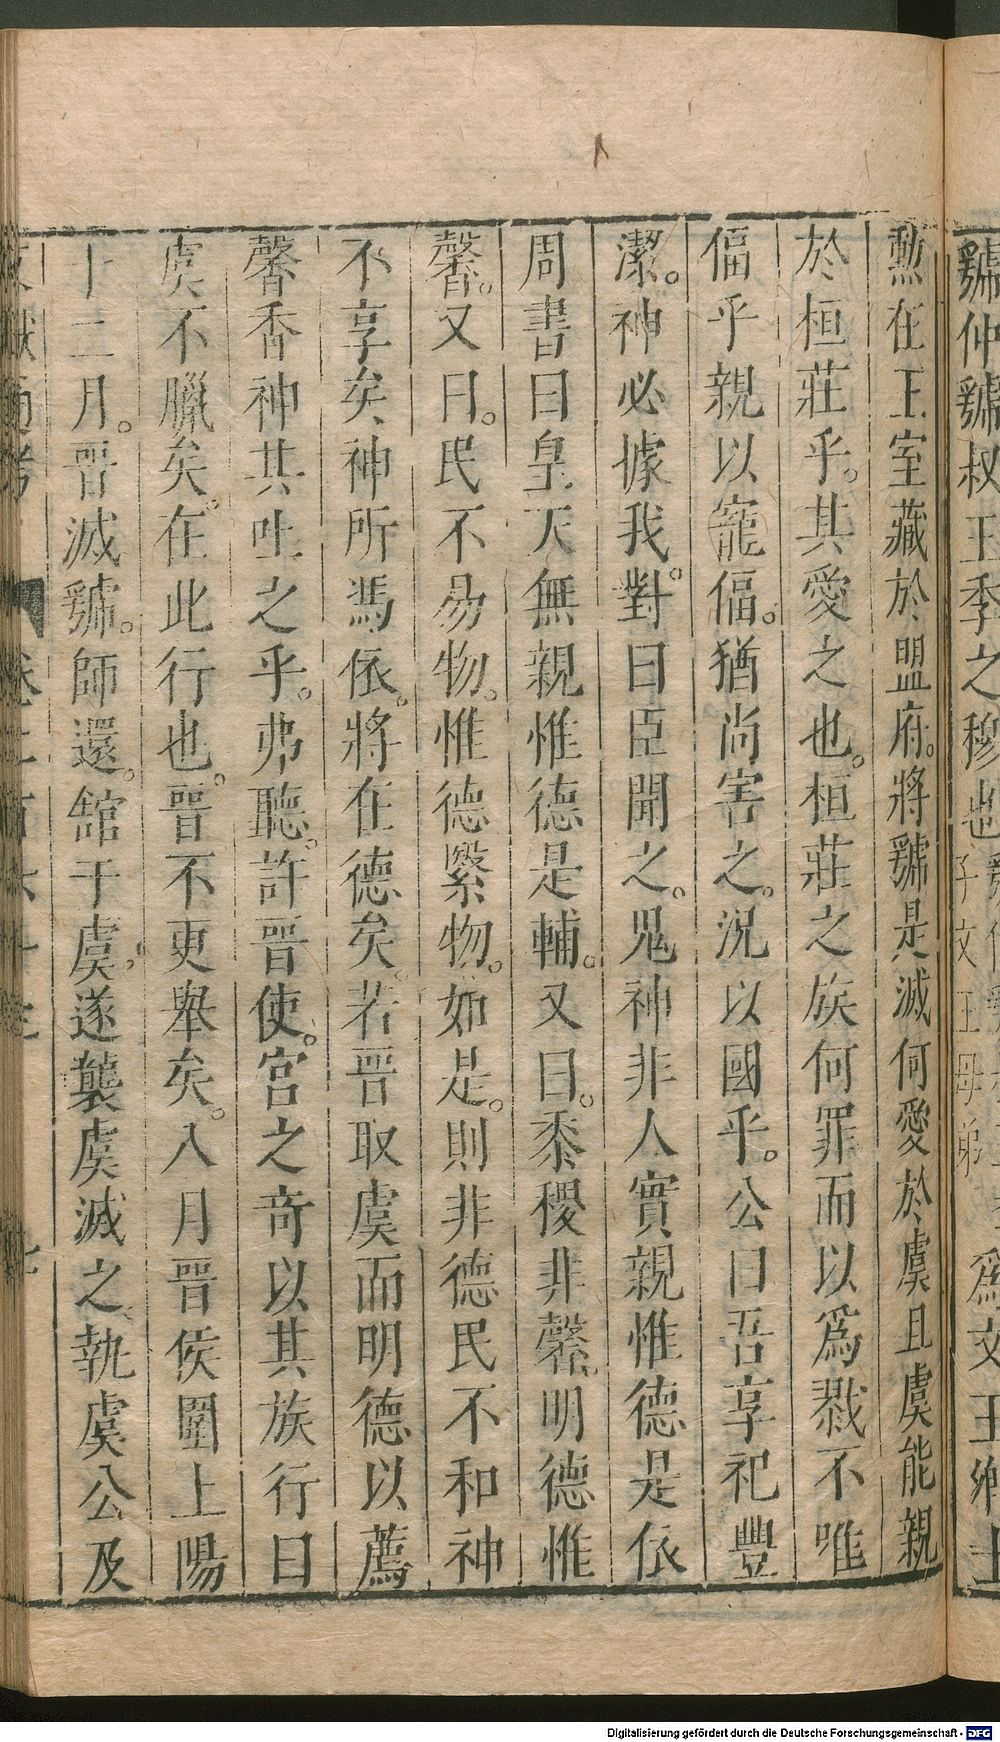 虢仲虢叔王季之穆也 爲文王卿士
勲在王室藏於盟府。將虢是滅何愛於虞且虞能親
於桓莊乎。其愛之也。桓莊之族何罪而以爲戮不唯
偪乎親以寵偪。猶尚害之。況以國乎。公曰吾享祀豐
潔。神必據我。對曰臣聞之。鬼神非人實親惟德是依
周書曰皇天無親惟德是輔。又曰。黍稷非馨。明德惟
馨。又曰。民不易物。惟德繄物。如是。則非德民不和神
不享矣神所馮依。將在德矣。若晉取虞而明德以薦
馨香神其吐之乎。弗聽。許晉使。宮之奇以其族行曰
虞不臘矣。在此行也。晉不更舉矣。八月晉侯圍上陽
十二月。晉滅虢。師還。館于虞。遂襲虞滅之執虞公及
Digitalisierung gefördert durch die Deutsche Forschungsgemeinschaft - DFG